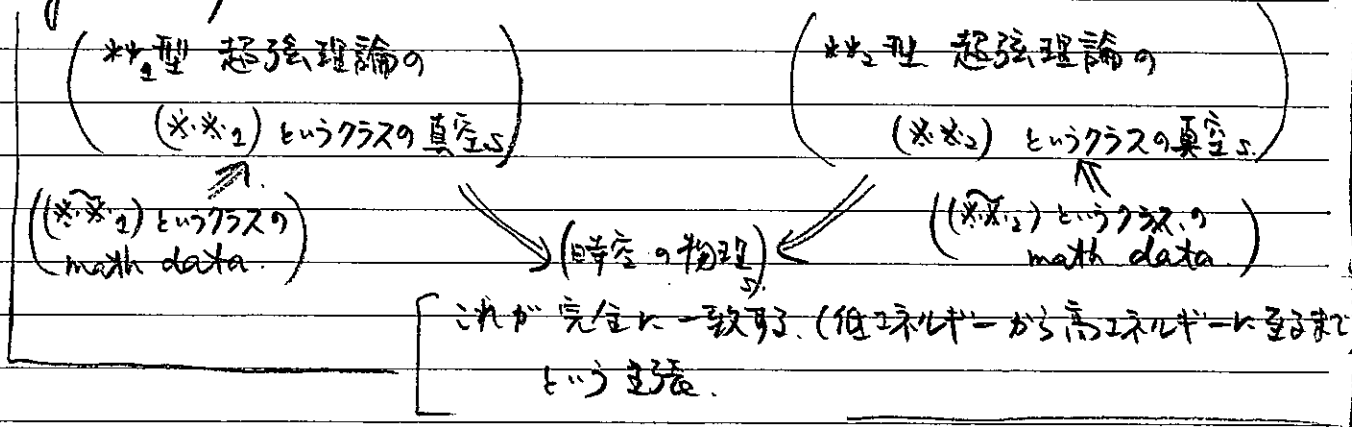 (**₁型 超弦理論の
(※※₁) というクラスの真空s)
(**₂型 超弦理論の
(※※₂) というクラスの真空s.)
((※※₁~) というクラスの
math data.)
(時空の物理s)
((※※₂~) というクラスの
math data.)
これが完全に一致する.(低エネルギーから高エネルギーに至るまで)
という主張.